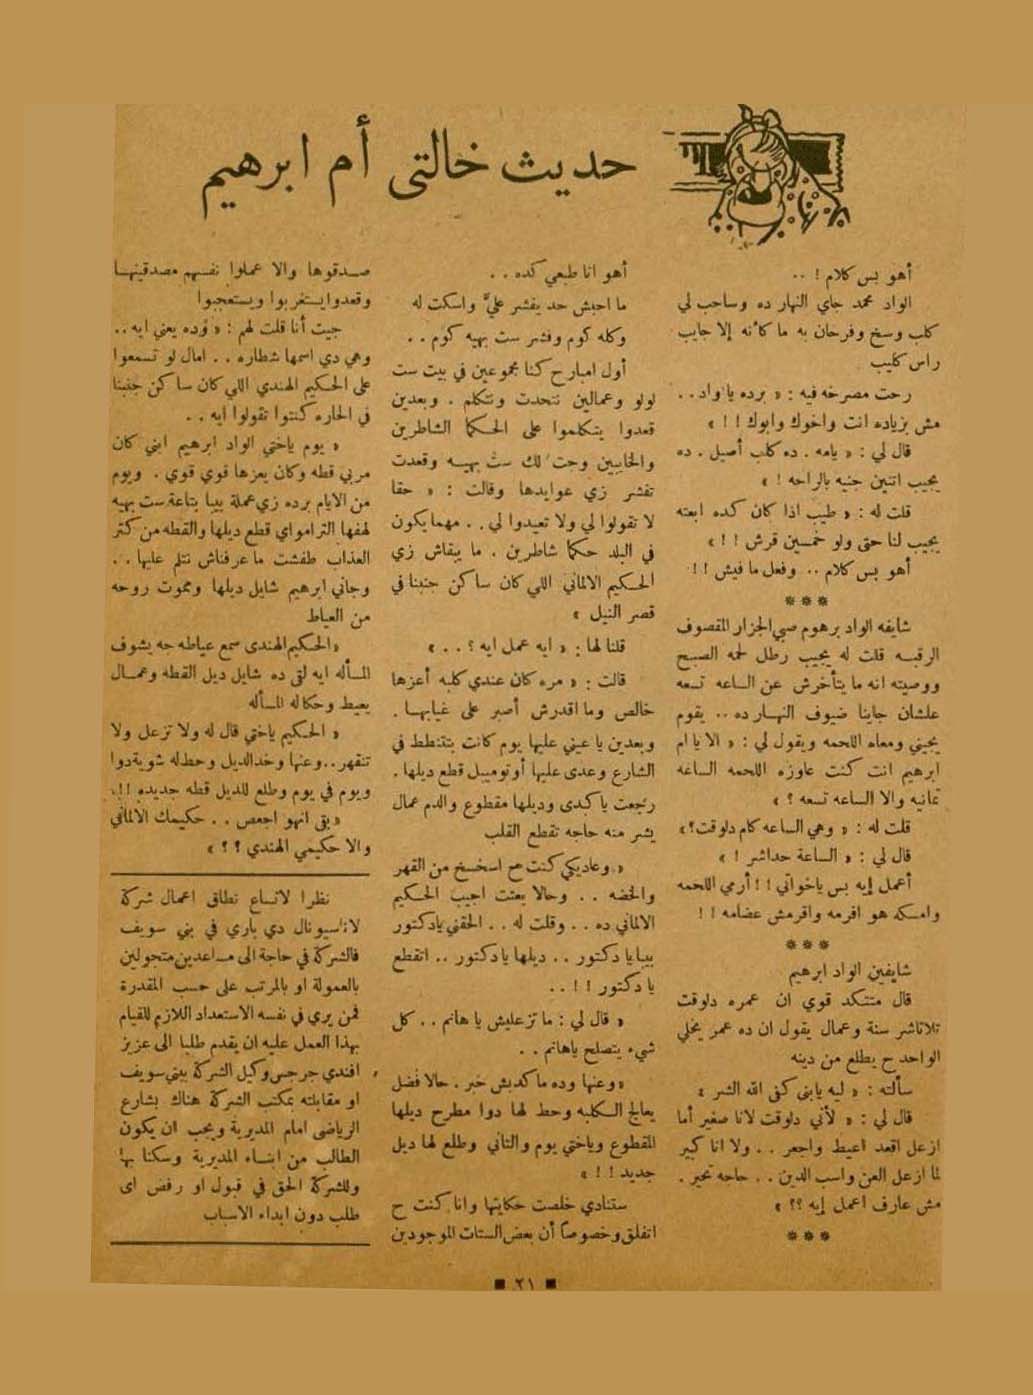 حديث خالتي أم ابرهيم
أهو بس كلام ! ..
الواد محمد جاي النهار ده وساحب لي
كلب وسخ وفرحان به ما كأنه إلا جايب
راس كليب
رحت مصرخه فيه : « برده يا واد . .
مش بزياده انت واخوك وابوك ! ! »
قال لي : « يامه . ده كلب أصيل . ده
يجيب اتنين جنيه بالراحه ! »
قلت له : « طيب اذا كان كده ابعته
يجيب لنا حتى ولو خمسين قرش ! ! »
أهو بس كلام .. وفعل ما فيش ! !
***
شايفه الواد برهوم صبي الجزار المقصوف
الرقبه قلت له يجيب رطل لحمه الصبح
ووصيته انه ما يتأخرش عن الساعه تسعه
علشان جاينا ضيوف النهار ده .. يقوم
يجيني ومعاه اللحمه ويقول لي : « الا يا ام
ابرهيم انت كنت عاوزه اللحمه الساعه
تمانيه والا الساعه تسعه ؟ »
قلت له : « وهي الساعه كام دلوقت ؟ »
قال لي : « الساعة حداشر ! »
أعمل إيه بس ياخواتي ! ! أرمي اللحمه
وامسكه هو افرمه واقرمش عضامه ! !
***
شايفين الواد ابرهيم
قال متنكد قوي ان عمره دلوقت
تلاتاشر سنة وعمال يقول ان ده عمر يخلي
الواحد ح يطلع من دينه
سألته : « ليه يابني كفى الله الشر »
قال لي : « لأني دلوقت لانا صغير أما
ازعل اقعد اعيط واجعر . . ولا انا كبير
لما ازعل العن واسب الدين . . حاجه تحير .
مش عارف اعمل إيه ؟؟ »
***
أهو انا طبعي كده . .
ما احبش حد يفشر عليّ واسكت له
وكله كوم وفشر ست بهيه كوم . .
أول امبارح كنا مجموعين في بيت ست
لولو وعمالين نتحدت ونتكلم . وبعدين
قعدوا يتكلموا على الحكما الشاطرين
والخايبين وجت لك ستّ بهيه وقعدت
تفشر زي عوايدها وقالت : « حقا
لا تقولوا لي ولا تعيدوا لي . . مهما يكون
في البلد حكما شاطرين . ما يبقاش زي
الحكيم الالماني اللي كان ساكن جنبنا في
قصر النيل »
قلنا لها : « ايه عمل ايه ؟ . . »
قالت : « مره كان عندي كلبه أعزها
خالص وما اقدرش أصبر على غيابها .
وبعدين يا عيني عليها يوم كانت بتتنطط في
الشارع وعدى عليها أوتومبيل قطع ديلها .
رجعت يا كبدى وديلها مقطوع والدم عمال
يشر منه حاجه تقطع القلب
« وعاديكي كنت ح اسخسخ من القهر
والخضه . . وحالا بعتت اجيب الحكيم
الالماني ده . . وقلت له . . الحقني يادكتور
بيبا يا دكتور . . ديلها يا دكتور .. اتقطع
يا دكتور ! ! ..
« قال لي : ما تزعليش يا هانم . . كل
شيء يتصلح ياهانم . .
« وعنها وده ما كدبش خبر . حالا فضل
يعالج الكلبه وحط لها دوا مطرح ديلها
المقطوع وياختي يوم والتاني وطلع لها ديل
جديد ! ! »
ستنادي خلصت حكايتها وانا كنت ح
اتفلق وخصوصاً أن بعض الستات الموجودين
صدقوها والا عملوا نفسهم مصدقينها
وقعدوا يستغربوا ويستعجبوا
جيت أنا قلت لهم : « وده يعني ايه . .
وهي دي اسمها شطاره . . امال لو تسمعوا
على الحكيم الهندي اللي كان ساكن جنبنا
في الحاره كنتوا تقولوا ايه . .
« يوم ياختي الواد ابرهيم ابني كان
مربي قطه وكان يعزها قوي قوي . ويوم
من الايام برده زي عملة بيبا بتاعة ست بهيه
لهفها الترامواي قطع ديلها والقطه من كتر
العذاب طفشت ما عرفناش نتلم عليها . .
وجاني ابرهيم شايل ديلها ويموت روحه
من العياط
« الحكيم الهندي سمع عياطه جه يشوف
المسأله ايه لقى ده شايل ديل القطه وعمال
يعيط وحكا له المسأله
« الحكيم ياختي قال له ولا تزعل ولا
تنقهر . . وعنها وخد الديل وحط له شوية دوا
ويوم في يوم وطلع للديل قطه جديده ! ! .
« بقى انهو اجعص . . حكيمك الالماني
والا حكيمي الهندي ؟ ؟ »
نظرا لاتساع نطاق اعمال شركة
لاناسيونال دي باري في بني سويف
فالشركة في حاجة الى مساعدين متجولين
بالعمولة او بالمرتب على حسب المقدرة
فمن يرى في نفسه الاستعداد اللازم للقيام
بهذا العمل عليه ان يقدم طلبا الى عزيز
افندي جرجس وكيل الشركة ببني سويف
او مقابلته بمكتب الشركة هناك بشارع
الرياضى امام المديرية ويجب ان يكون
الطالب من ابناء المديرية وسكنا بها
وللشركة الحق في قبول او رفض اى
طلب دون ابداء الاسباب
٢١